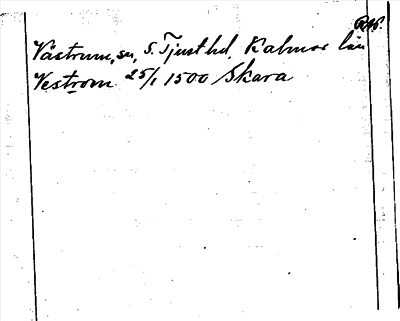 Västrum, sn, S. Tjust hd, Kalmar län
Vestrom 25/1 1500 Skara